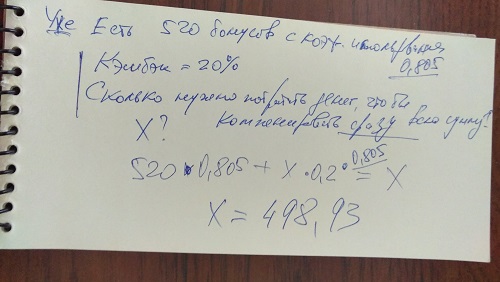 Уже Есть 520 бонусов с коэф. использования
0,805
Кэшбэк = 20%
Сколько нужно потратить денег, чтобы
X? компенсировать сразу всю сумму?
520 • 0,805 + X • 0,2 • 0,805 = X
X = 498,93